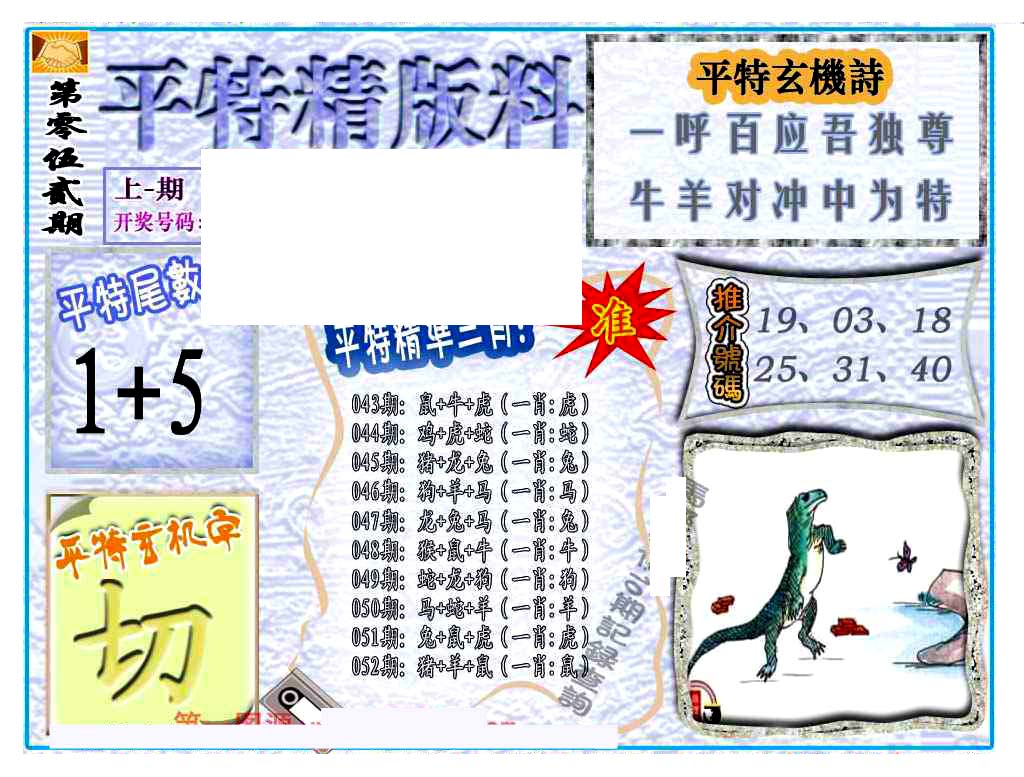 第零伍贰期
平特精版料
上-期
开奖号码:
平特玄機詩
一呼百应吾独尊
牛羊对冲中为特
平特尾數
1+5
平特精準三肖:
准
推介號碼
19、03、18
25、31、40
043期: 鼠+牛+虎(一肖:虎)
044期: 鸡+虎+蛇(一肖:蛇)
045期: 猪+龙+兔(一肖:兔)
046期: 狗+羊+马(一肖:马)
047期: 龙+兔+马(一肖:兔)
048期: 猴+鼠+牛(一肖:牛)
049期: 蛇+龙+狗(一肖:狗)
050期: 马+蛇+羊(一肖:羊)
051期: 兔+鼠+虎(一肖:虎)
052期: 猪+羊+鼠(一肖:鼠)
期記録查詢
平特玄机字
切